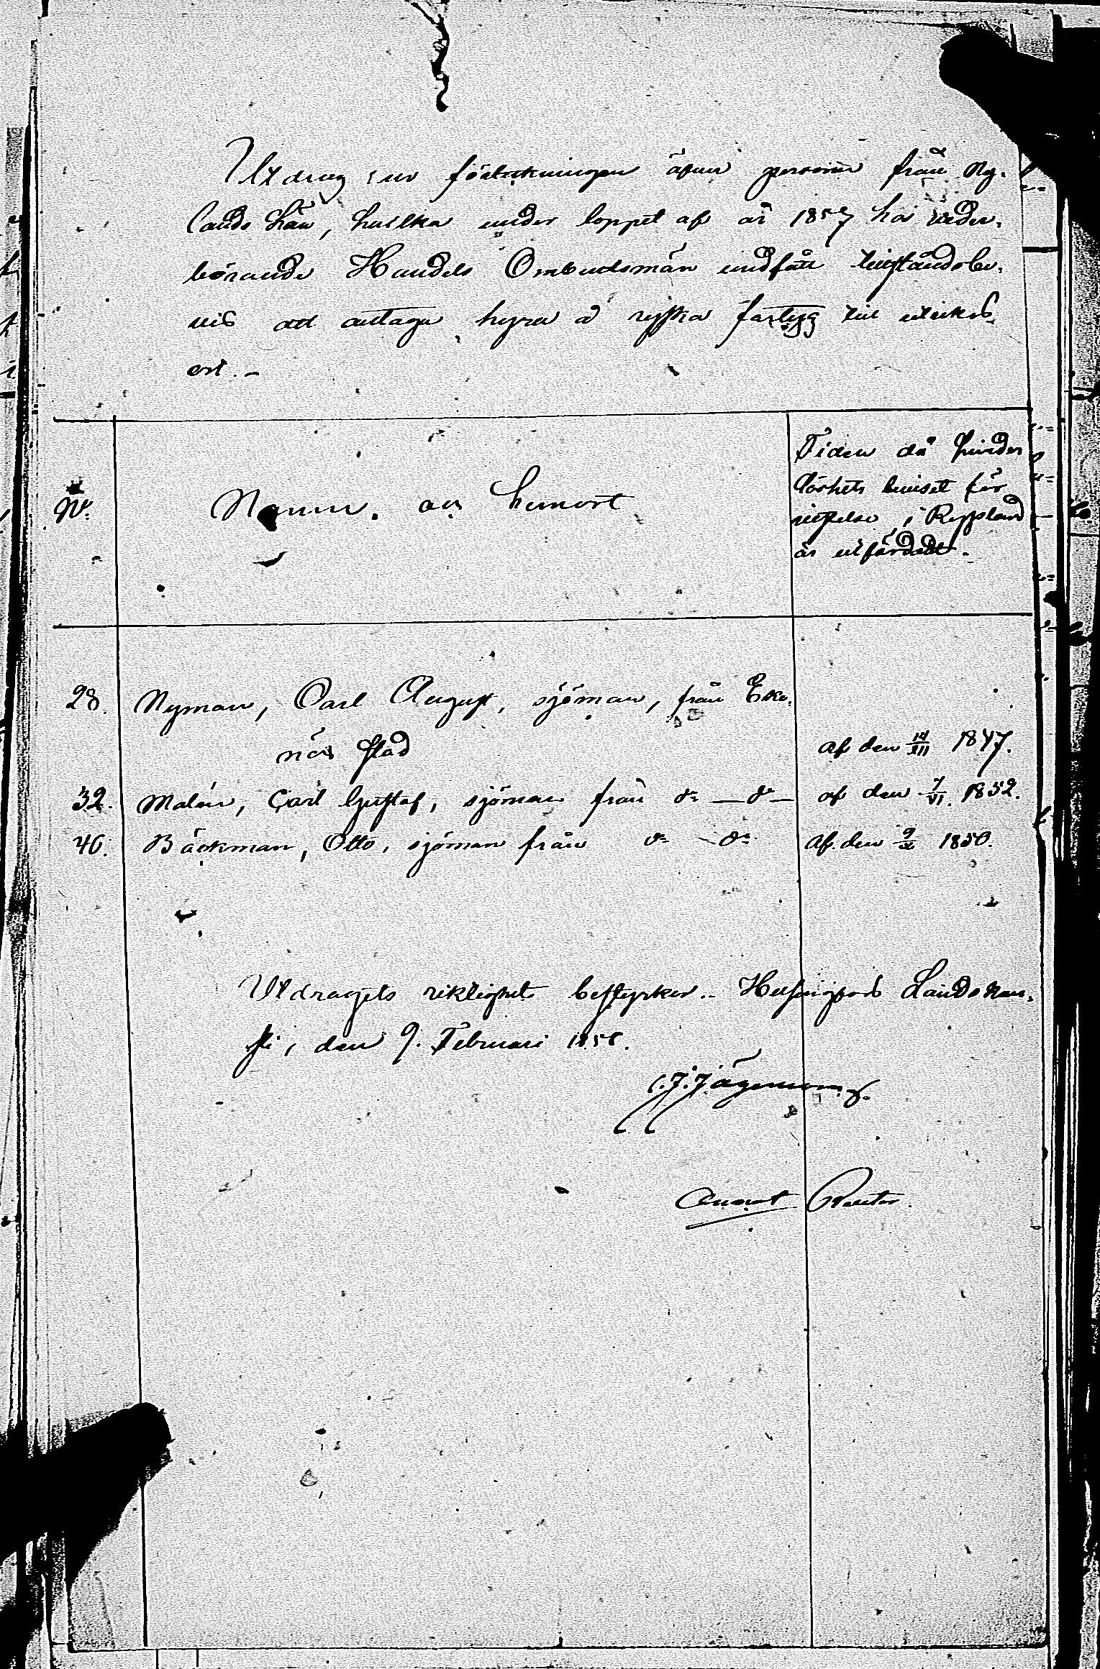 Utdrag ur förteckningen öfver personer från Ny-
lands län, hvilka under loppet af år 1857 hos veder-
börande Handels Ombudsmän undfått tillståndsbe-
vis att antaga hyra å ryska fartyg till utrikes
ort. -
No.
Namn och hemort
Tiden då hinder
löshets beviset för
vistelse i Ryssland
är utfärdadt.
28. Nyman, Carl August, sjöman, från Eke-
näs stad af den 14/XII 1847.
32. Malén, Carl Gustaf, sjöman från do — do — af den 7/VI. 1852.
46. Bäckman, Otto, sjöman från do — do Af den 9/X 1850.
Utdragets riktighet bestyrker. Helsingfors Landskan-
sli, den 9. Februari 1858.
C. J. J.
August Reuter.